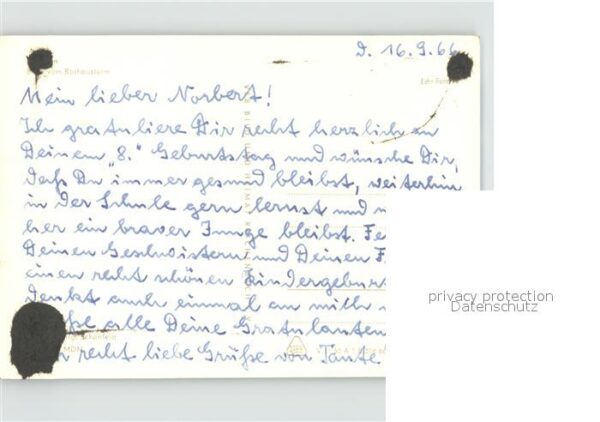 D. 16.9.66
vom Rathausturm
Echt Foto
Mein lieber Norbert!
Ich gratuliere Dir recht herzlich zu
Deinem „8." Geburtstag und wünsche Dir,
daß Du immer gesund bleibst, weiterhin
in der Schule gern lernst und
her ein braver Junge bleibst.
Deinen Geschwistern und Deinen
einen recht schönen Kindergeburt
denkt auch einmal an mich
alle Deine Gratulanten
recht liebe Grüße von Tante
privacy protection
Datenschutz